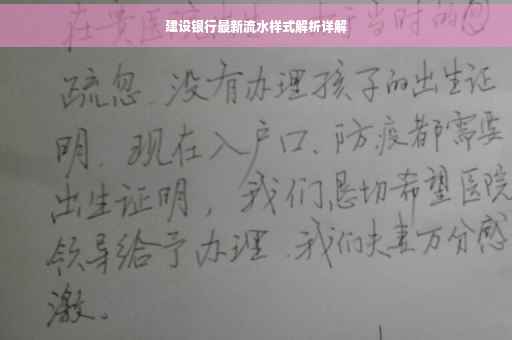 建设银行最新流水样式解析详解
在贵医院出生,由于当时的
疏忽、没有办理孩子的出生证
明、现在入户口、防疫都需要
出生证明,我们恳切希望医院
领导给予办理、我们夫妻万分感
激。